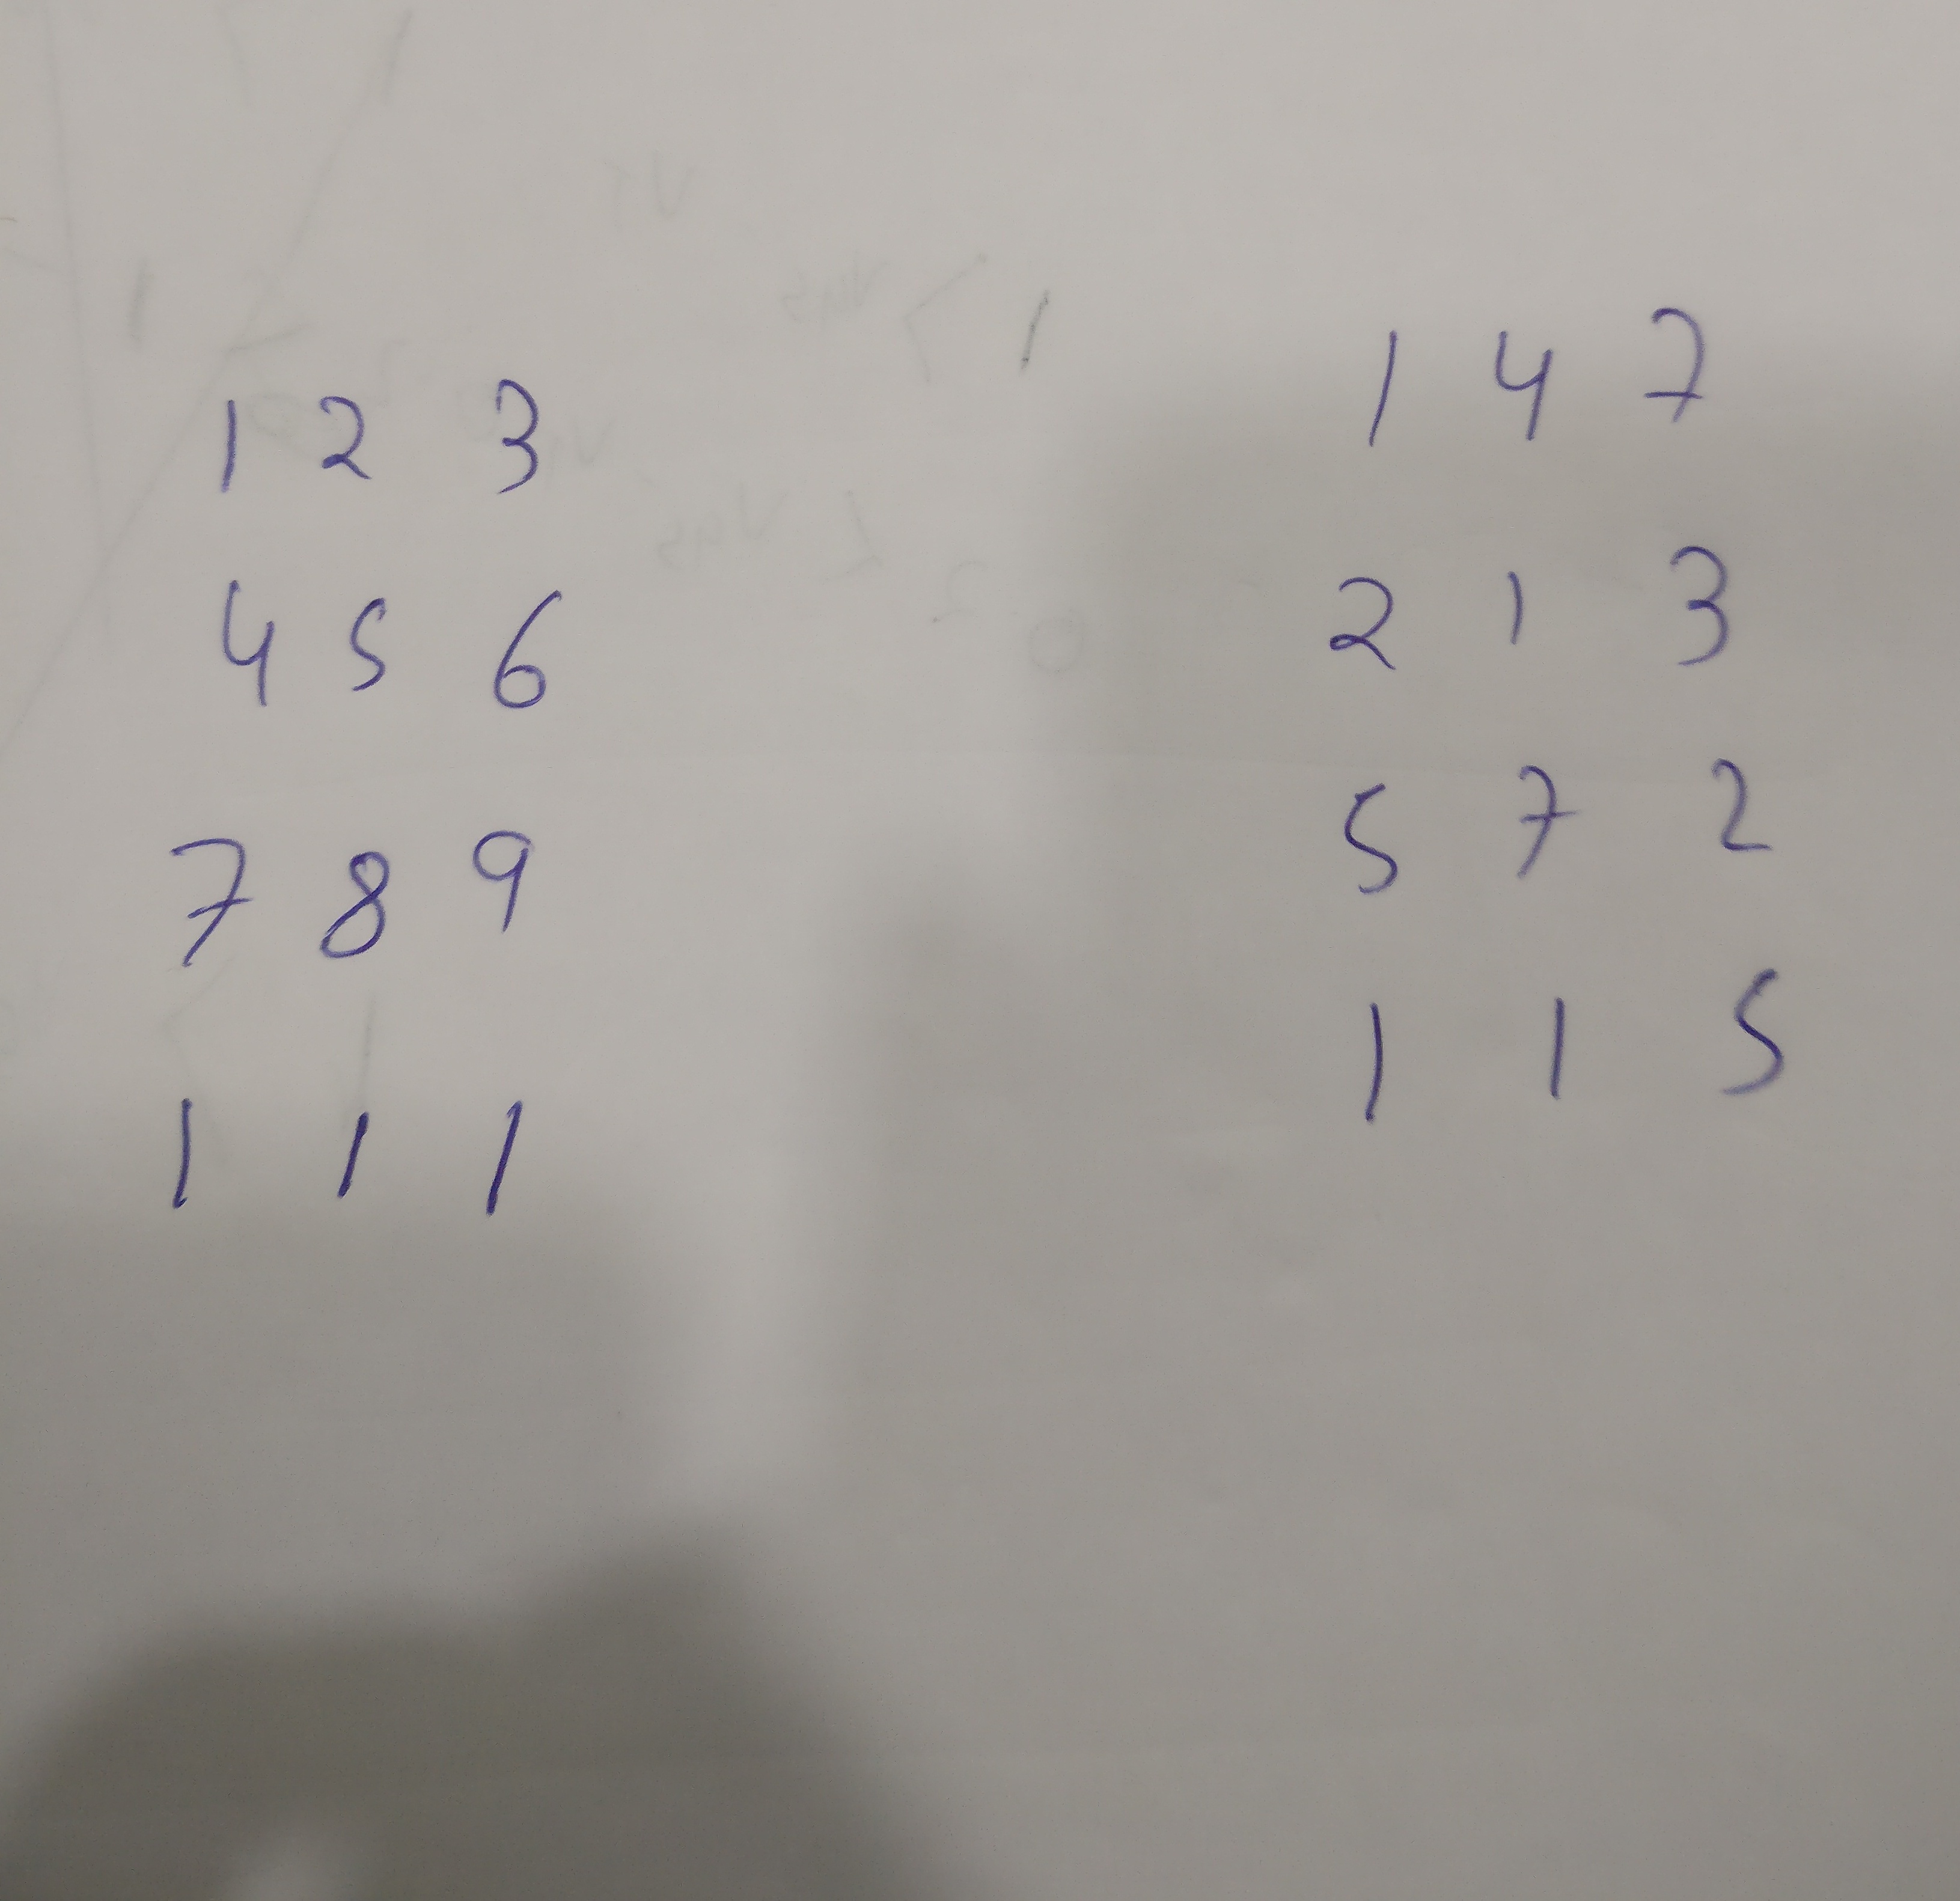 1 2 3
4 5 6
7 8 9
1 1 1
1 4 7
2 1 3
5 7 2
1 1 5